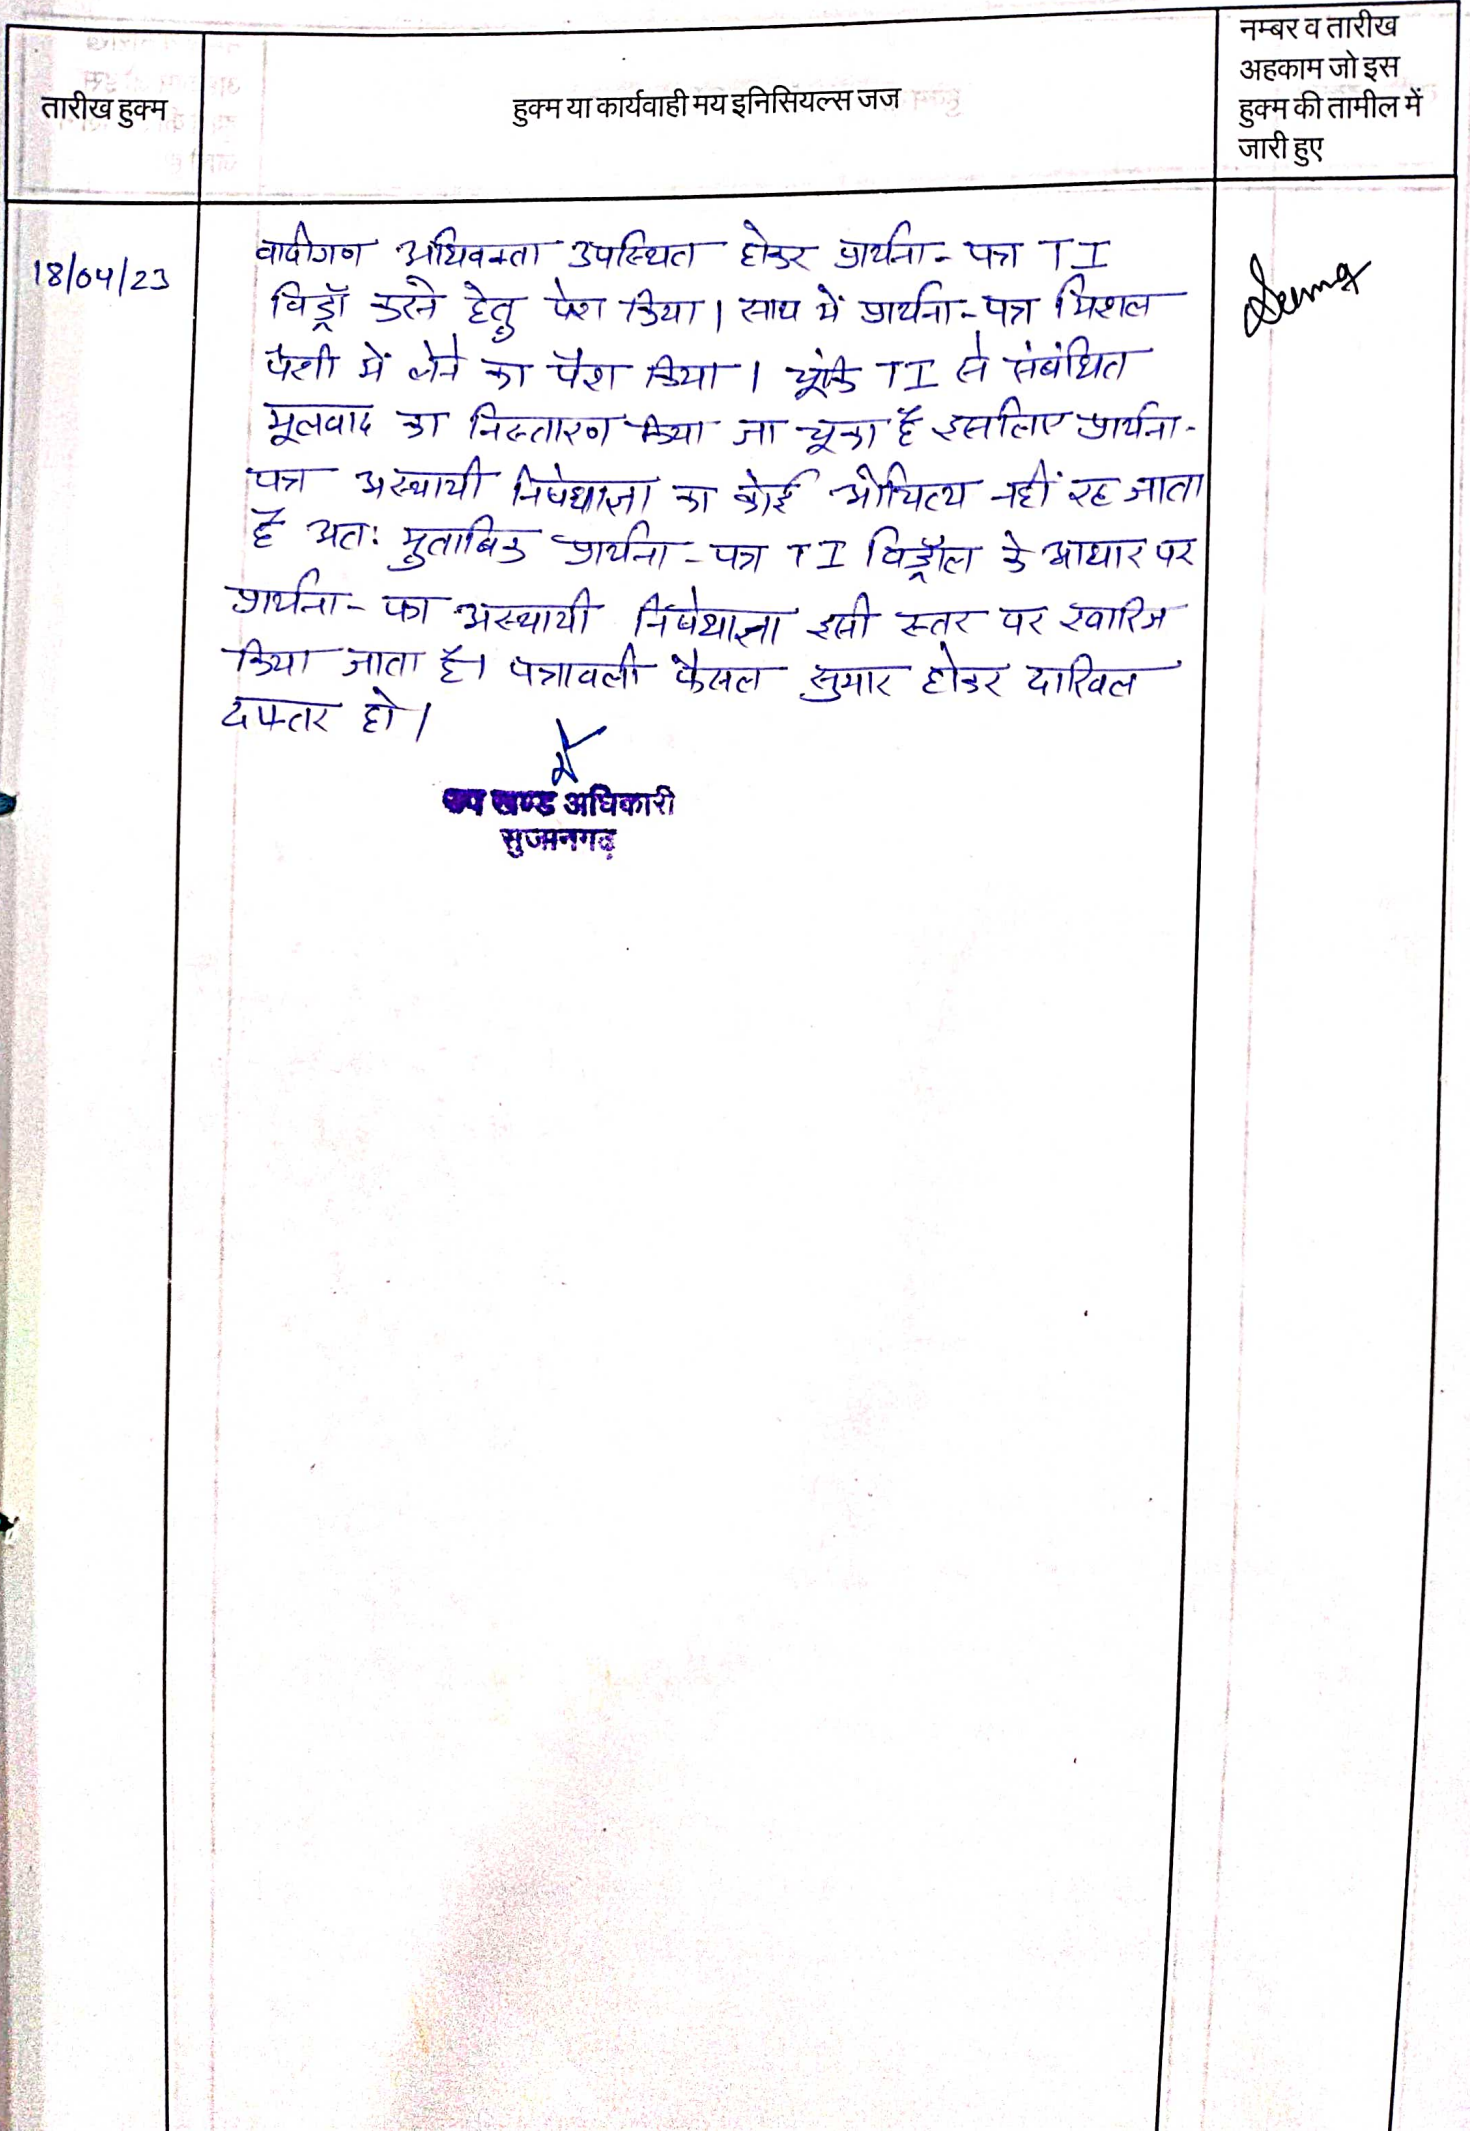 तारीख हुक्म
हुक्म या कार्यवाही मय इनिसियल्स जज
नम्बर व तारीख
अहकाम जो इस
हुक्म की तामील में
जारी हुए
18/04/23
वादीगण अधिवक्ता उपस्थित होकर प्रार्थना-पत्र TI
विड्रॉ करने हेतु पेश किया। साथ में प्रार्थना-पत्र मिशल
पेशी में लेने का पेश किया। चूंकि TI से संबंधित
मूलवाद का निस्तारण किया जा चूका है इसलिए प्रार्थना-
पत्र अस्थायी निषेधाज्ञा का कोई औचित्य नहीं रह जाता
है अतः मुताबिक प्रार्थना-पत्र TI विड्रॉल के आधार पर
प्रार्थना-पत्र अस्थायी निषेधाज्ञा इसी स्तर पर खारिज
किया जाता है। पत्रावली फैसल सुमार होकर दाखिल
दफ्तर हो।
उप खण्ड अधिकारी
सुजानगढ़